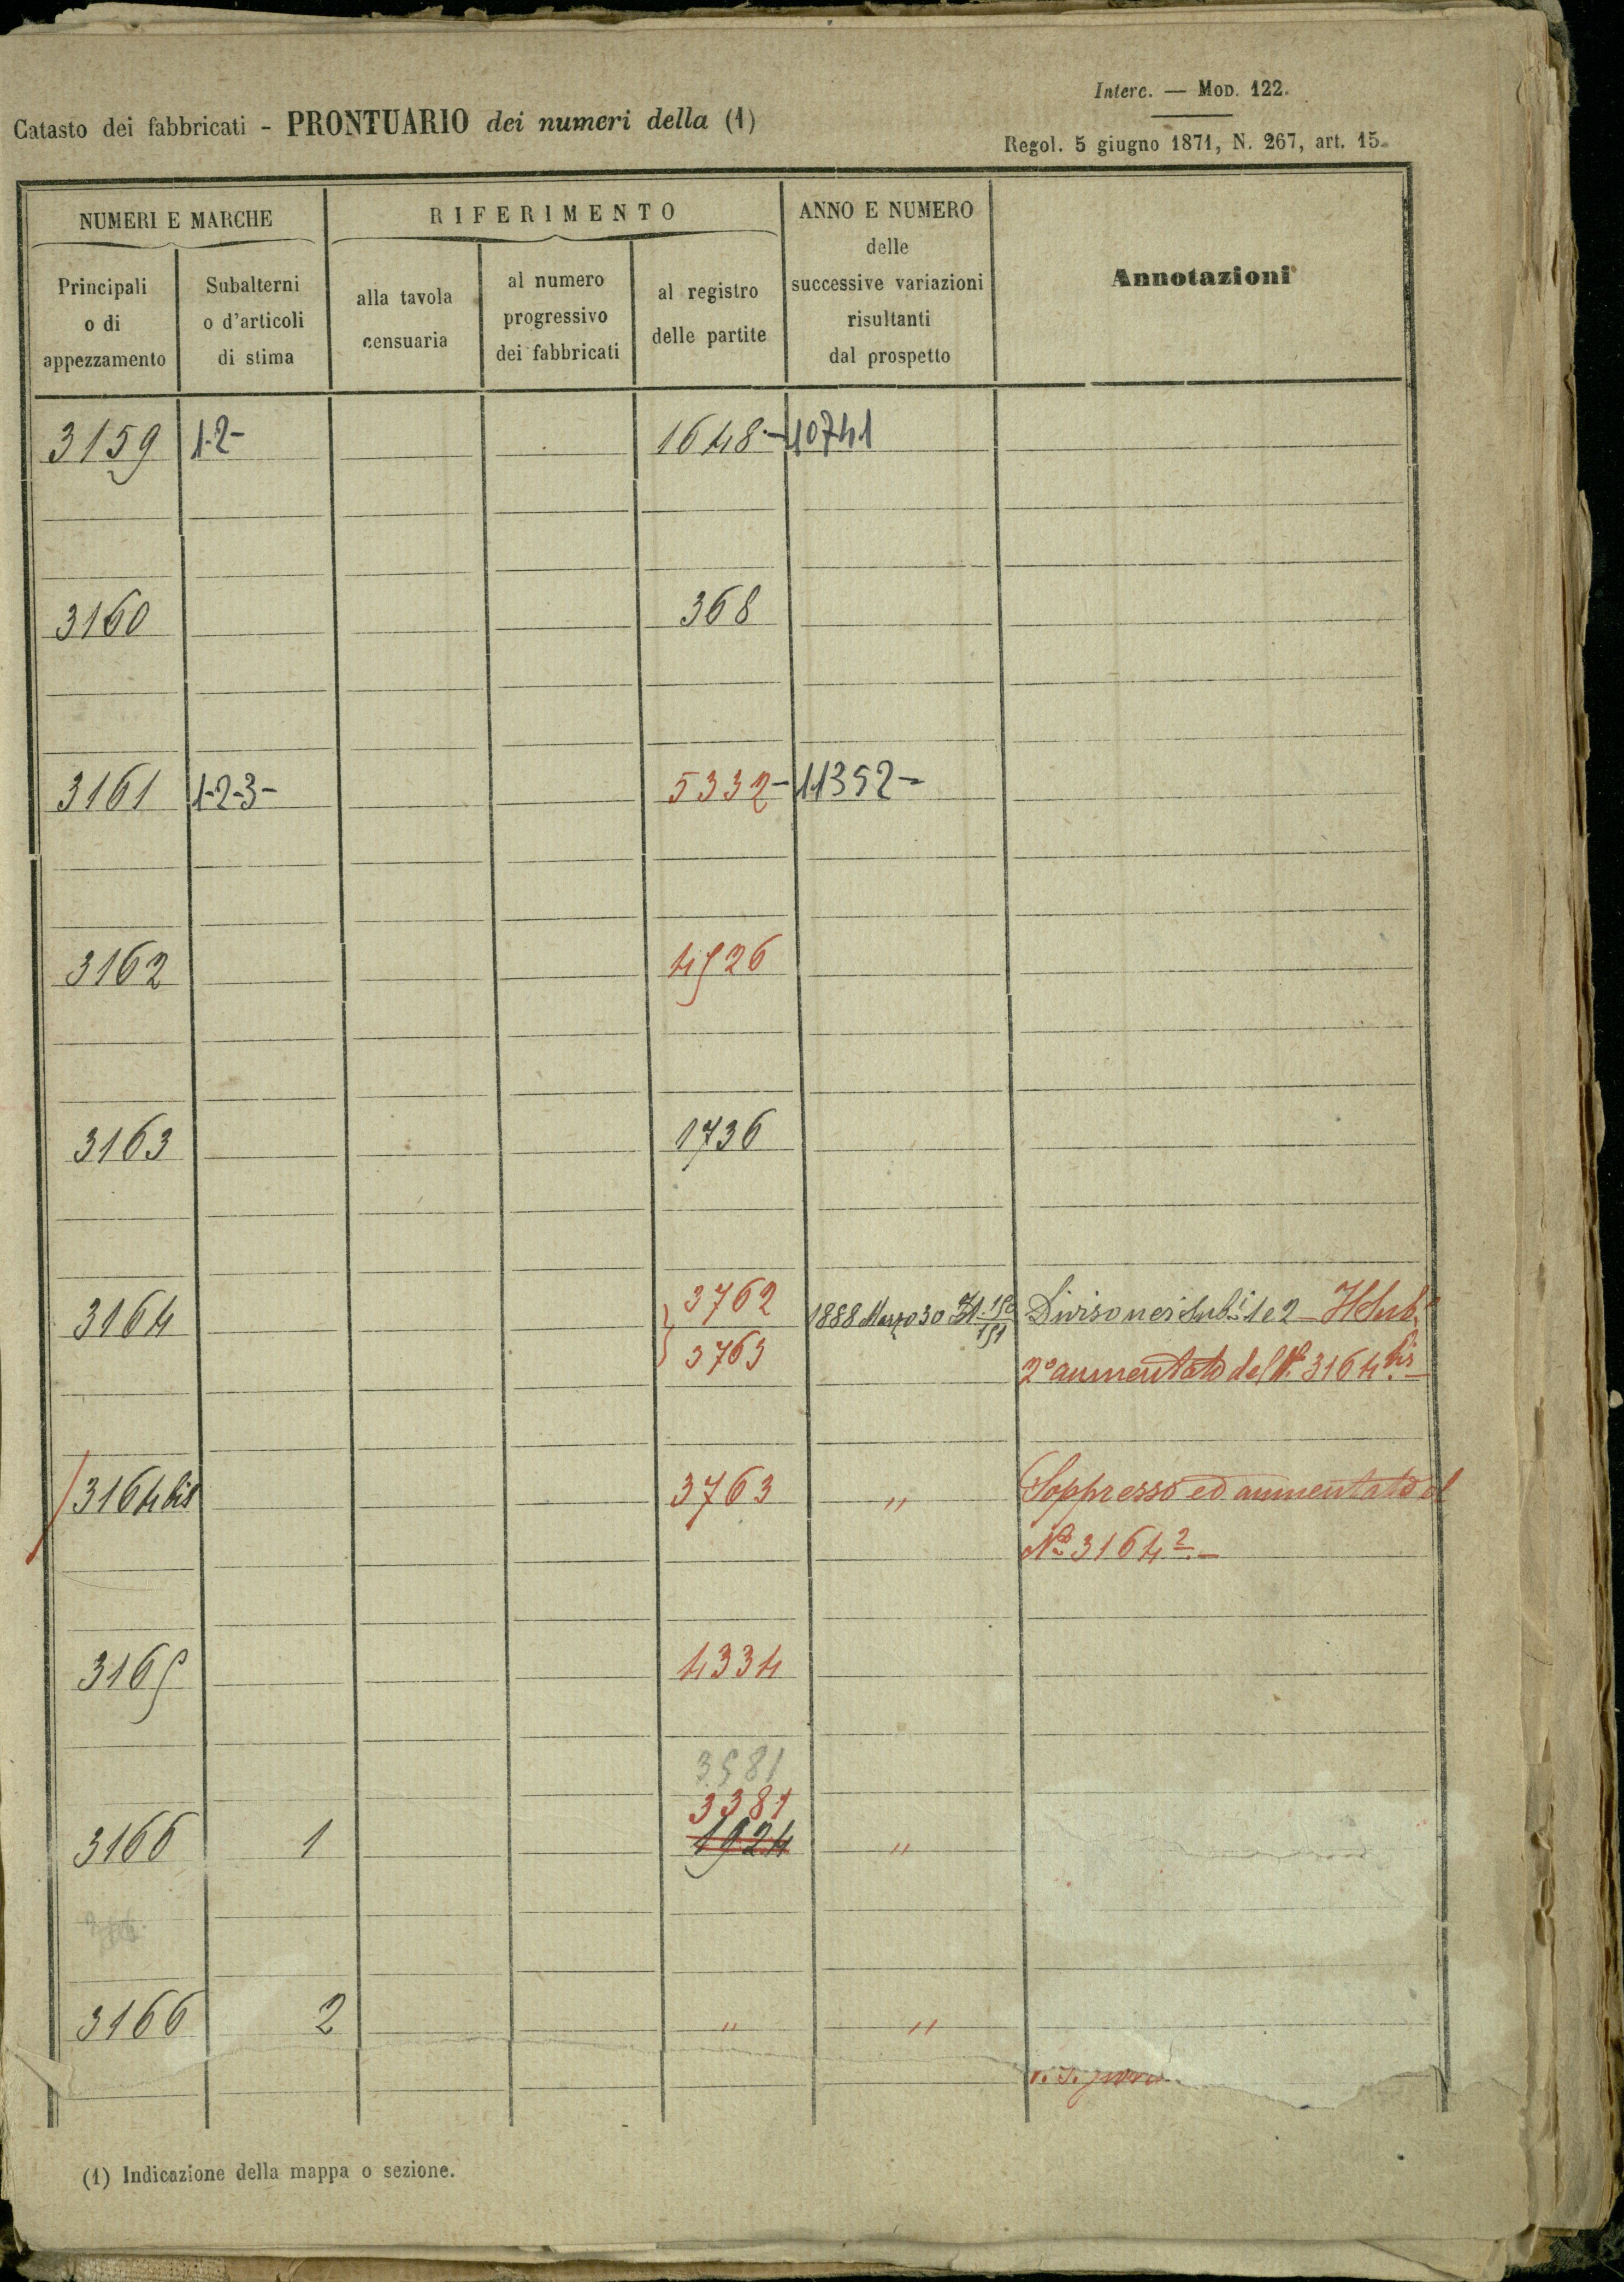 Interc. — MOD. 122.
Catasto dei fabbricati - PRONTUARIO dei numeri della (1)
Regol. 5 giugno 1871, N. 267, art. 15.
NUMERI E MARCHE
RIFERIMENTO
ANNO E NUMERO
delle
successive variazioni
risultanti
dal prospetto
Annotazioni
Principali
o di
appezzamento
Subalterni
o d'articoli
di stima
alla tavola
censuaria
al numero
progressivo
dei fabbricati
al registro
delle partite
3159 1-2- 1648-10741
3160 368
3161 1-2-3- 5332-11352-
3162 4526
3163 1736
3164 3762 1888 Marzo 30 Diviso nei Sub.i 1 e 2 - Il Sub.o
3763 2° aumentato del N. 3164 bis -
3164 bis 3763 " Soppresso ed aumentato al
No 3164 2. -
3165 4334
3581
3381
3166 1 1924 "
3166 2 " "
(1) Indicazione della mappa o sezione.